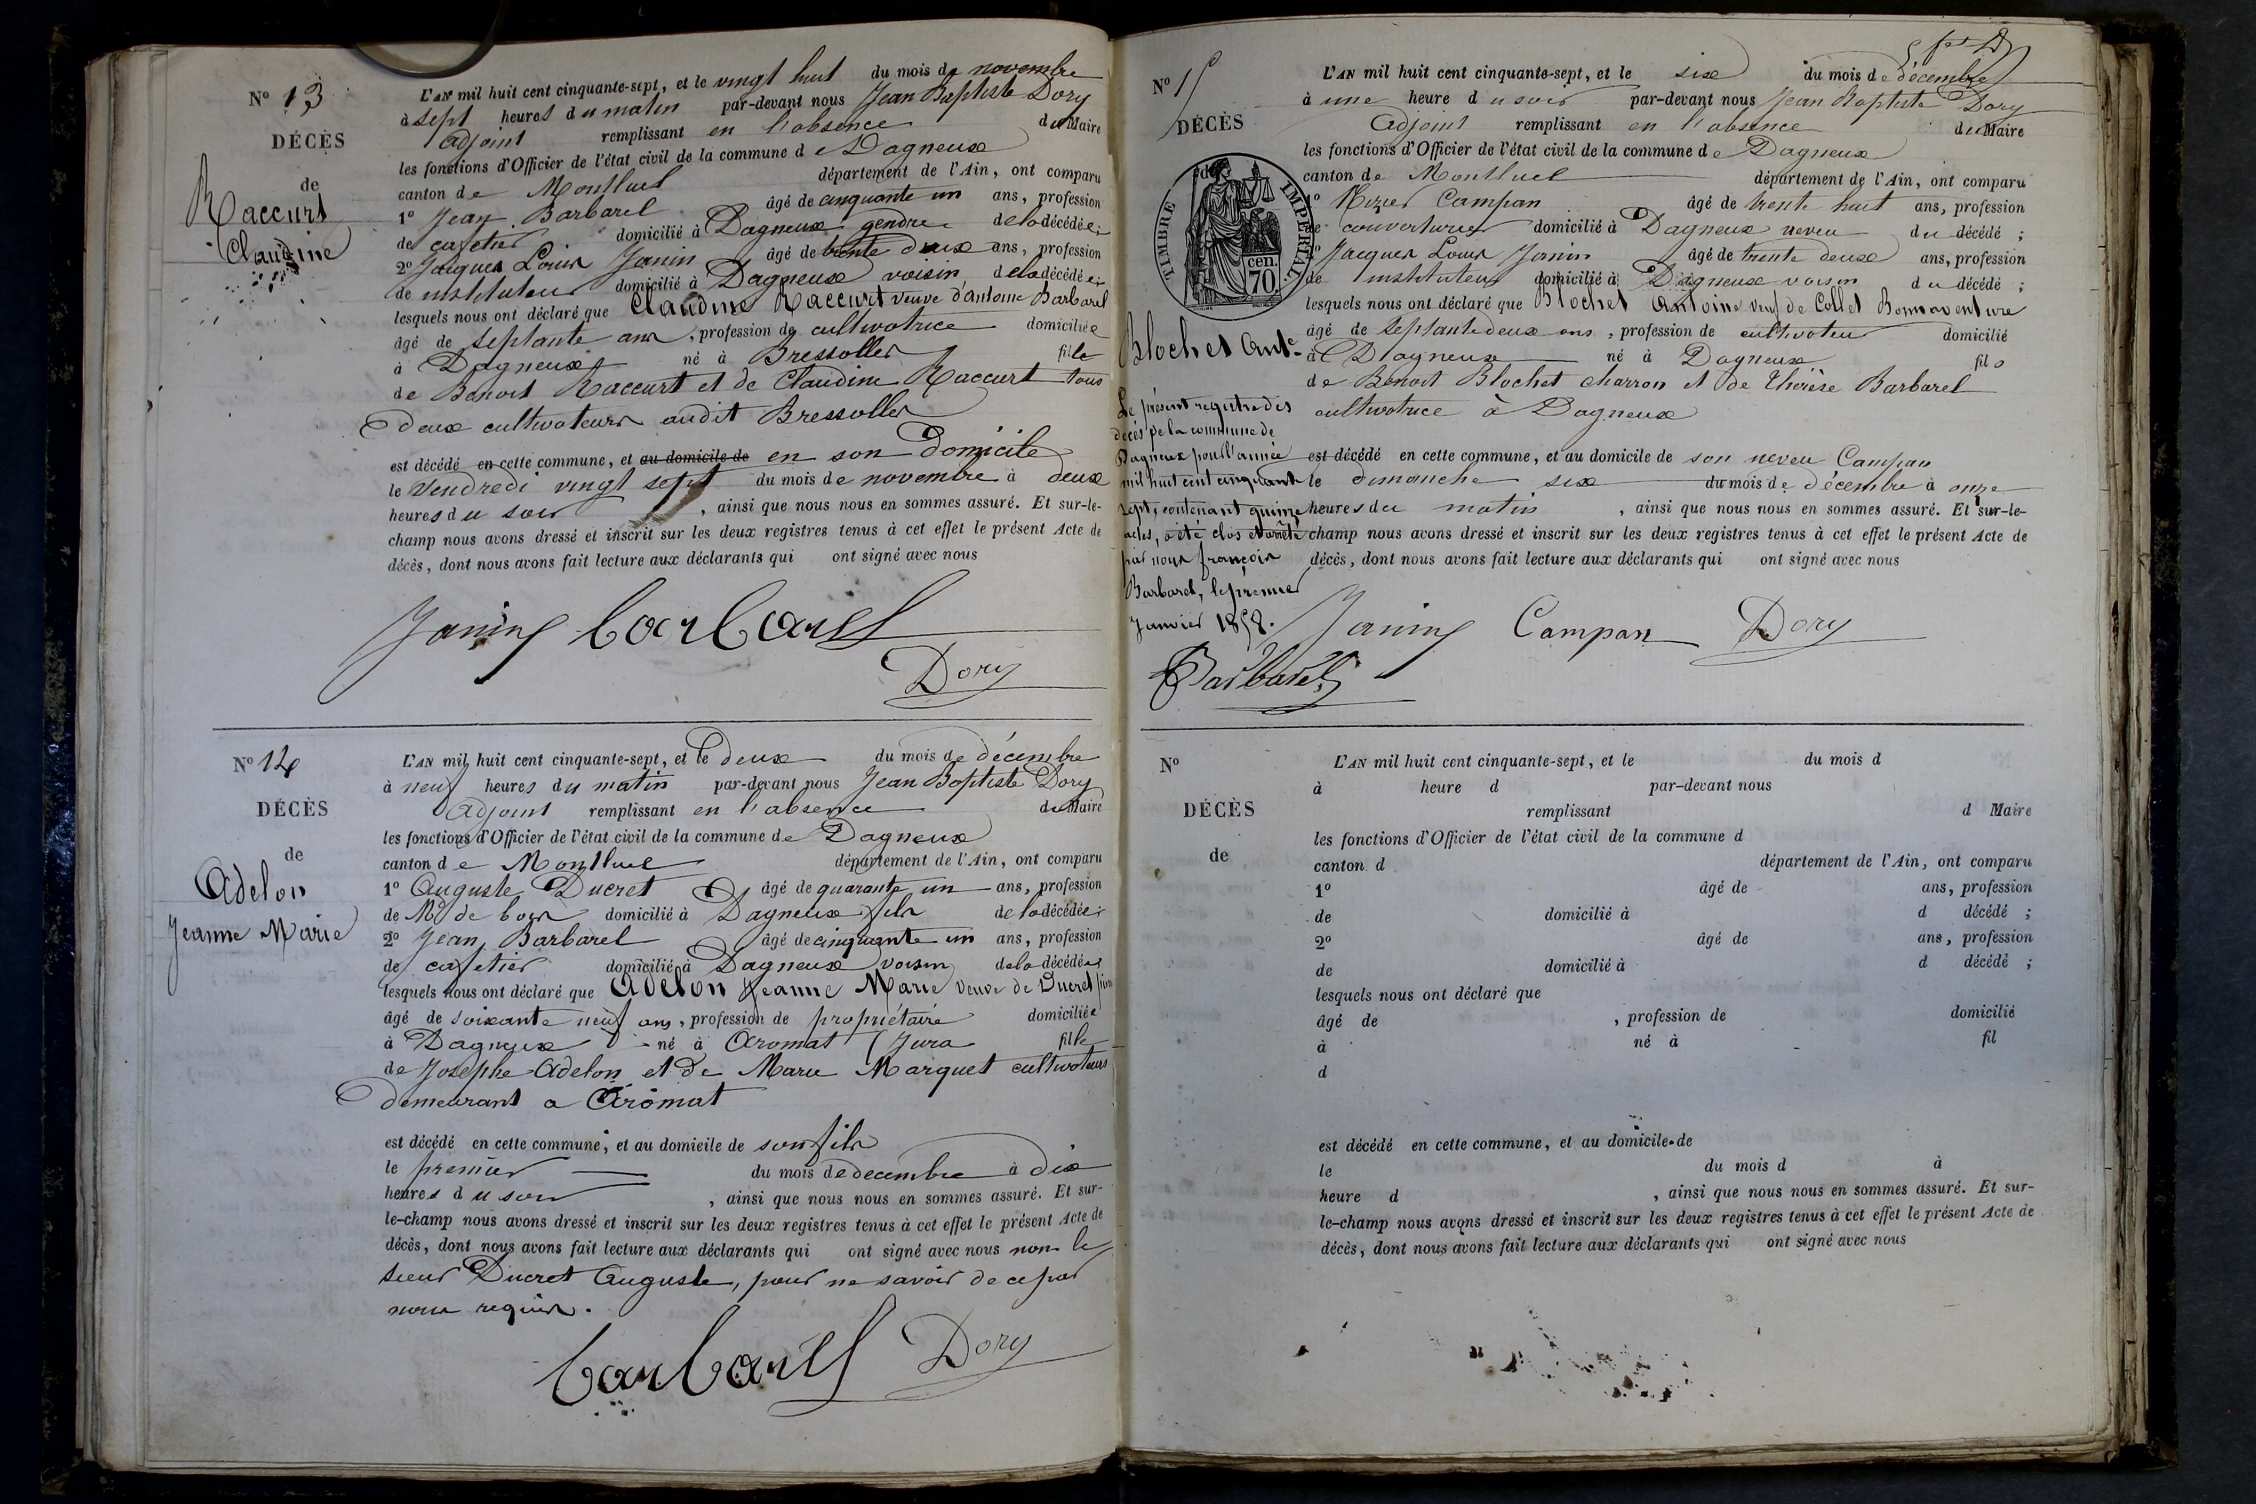 Nº 13
DÉCÈS
de
Raccurt
Claudine
L'AN mil huit cent cinquante-sept, et le vingt huit du mois de novembre
à sept heures du matin par-devant nous Jean Baptiste Dory
Adjoint remplissant en l'absence du Maire
les fonctions d'Officier de l'état civil de la commune de Dagneux
canton de Montluel département de l'Ain, ont comparu
1º Jean Barbarel âgé de cinquante un ans, profession
de cafetier domicilié à Dagneux gendre de la décédée;
2º Jacques Louis Janin âgé de trente deux ans, profession
de instituteur domicilié à Dagneux voisin de la décédée;
lesquels nous ont déclaré que Claudine Raccurt veuve d'Antoine Barbarel
âgé de septante ans, profession de cultivatrice domiciliée
à Dagneux né à Bressolles fille
de Benoit Raccurt et de Claudine Raccurt tous
deux cultivateurs audit Bressolles
est décédé en cette commune, et au domicile de en son domicile
le Vendredi vingt sept du mois de novembre à deux
heures du soir, ainsi que nous nous en sommes assuré. Et sur-le-
champ nous avons dressé et inscrit sur les deux registres tenus à cet effet le présent Acte de
décès, dont nous avons fait lecture aux déclarants qui ont signé avec nous
Janin barbarel
Dory
Nº 14
DÉCÈS
de
Adelon
Jeanne Marie
L'AN mil huit cent cinquante-sept, et le deux du mois de décembre
à neuf heures du matin par-devant nous Jean Baptiste Dory
Adjoint remplissant en l'absence du Maire
les fonctions d'Officier de l'état civil de la commune de Dagneux
canton de Montluel département de l'Ain, ont comparu
1º Auguste Ducret âgé de quarante un ans, profession
de Md de bois domicilié à Dagneux fils de la décédée;
2º Jean Barbarel âgé de cinquante un ans, profession
de cafetier domicilié à Dagneux voisin de la décédée;
lesquels nous ont déclaré que Adelon Jeanne Marie veuve de Ducret
âgé de soixante neuf ans, profession de propriétaire domiciliée
à Dagneux né à Aromat (Jura fille
de Josephe Adelon et de Marie Marquet cultivateurs
demeurant a Aromat
est décédé en cette commune, et au domicile de son fils
le premier du mois de decembre à dix
heures du soir, ainsi que nous nous en sommes assuré. Et sur-
le-champ nous avons dressé et inscrit sur les deux registres tenus à cet effet le présent Acte de
décès, dont nous avons fait lecture aux déclarants qui ont signé avec nous non le
sieur Ducret Auguste, pour ne savoir de ce par
nous requis.
barbarel Dory
Nº 15
DÉCÈS
TIMBRE IMPÉRIAL
70 cen.
Blochet Ante
Le présent registre des
décès de la commune de
Dagneux pour l'année
mil huit cent cinquante
sept, contenant quinze
actes, a été clos et arrêté
par nous françois
Barbarel, le premier
Janvier 1858.
Barbarel
L'AN mil huit cent cinquante-sept, et le six du mois de décembre
à une heure du soir par-devant nous Jean Baptiste Dory
Adjoint remplissant en l'absence du Maire
les fonctions d'Officier de l'état civil de la commune de Dagneux
canton de Montluel département de l'Ain, ont comparu
1º Nizier Campan âgé de trente huit ans, profession
de couverturier domicilié à Dagneux neveu du décédé;
2º Jacques Louis Janin âgé de trente deux ans, profession
de instituteur domicilié à Dagneux voisin du décédé;
lesquels nous ont déclaré que Blochet Antoine veuf de Collet Bonnaventure
âgé de septante deux ans, profession de cultivateur domicilié
à Dagneux né à Dagneux fils
de Benoit Blochet charron et de Thérèse Barbarel
cultivatrice à Dagneux
est décédé en cette commune, et au domicile de son neveu Campan
le dimanche six du mois de décembre à onze
heures du matin, ainsi que nous nous en sommes assuré. Et sur-le-
champ nous avons dressé et inscrit sur les deux registres tenus à cet effet le présent Acte de
décès, dont nous avons fait lecture aux déclarants qui ont signé avec nous
Janin Campan Dory
Nº
DÉCÈS
de
L'AN mil huit cent cinquante-sept, et le du mois d
à heure d par-devant nous
remplissant d Maire
les fonctions d'Officier de l'état civil de la commune d
canton d département de l'Ain, ont comparu
1º âgé de ans, profession
de domicilié à d décédé;
2º âgé de ans, profession
de domicilié à d décédé;
lesquels nous ont déclaré que
âgé de, profession de domicilié
à né à fil
d
est décédé en cette commune, et au domicile de
le du mois d à
heure d, ainsi que nous nous en sommes assuré. Et sur-
le-champ nous avons dressé et inscrit sur les deux registres tenus à cet effet le présent Acte de
décès, dont nous avons fait lecture aux déclarants qui ont signé avec nous